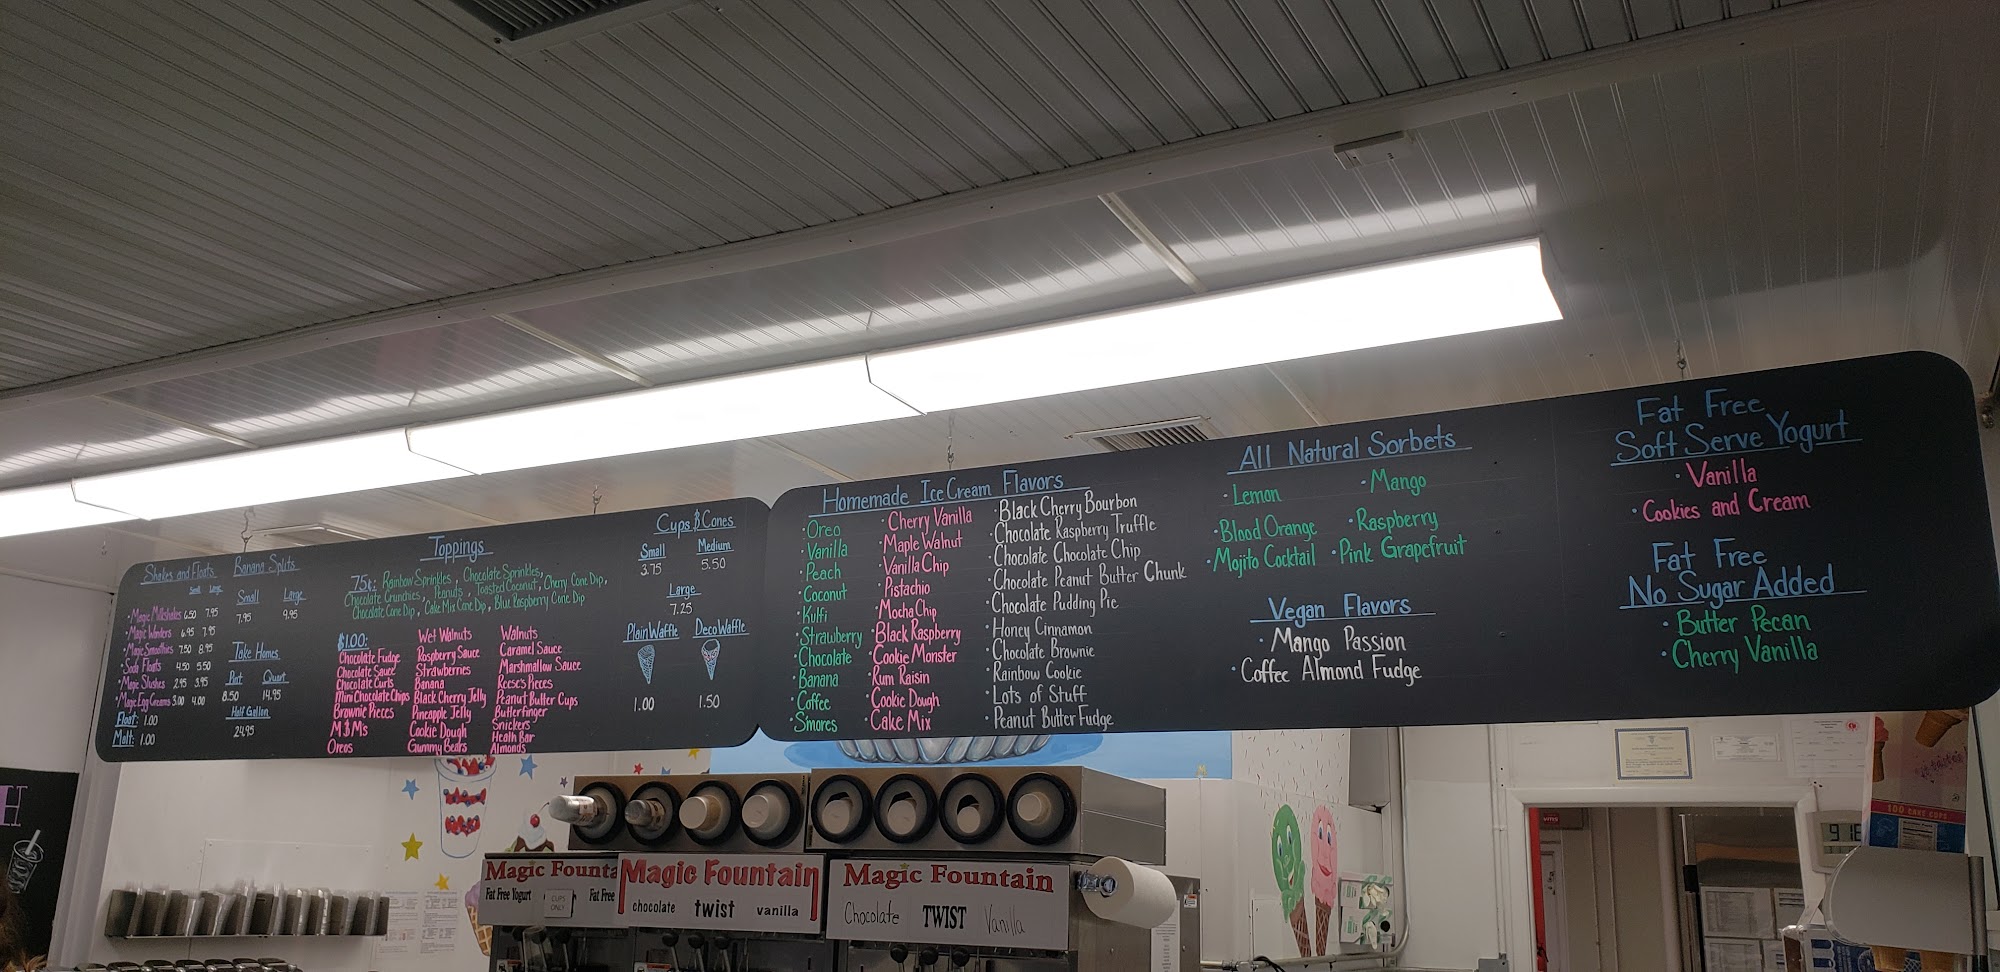 Shakes and Floats
Small Large
• Magic Milkshakes 6.50 7.95
• Magic Wonders 6.95 7.95
• Magic Smoothies 7.50 8.95
• Soda Floats 4.50 5.50
• Magic Slushes 2.95 3.95
• Magic Egg Creams 3.00 4.00
Float: 1.00
Malt: 1.00
Banana Splits
Small Large
7.95 9.95
Take Homes
Pint Quart
8.50 14.95
Half Gallon
24.95
Toppings
75¢: Rainbow Sprinkles, Chocolate Sprinkles,
Chocolate Crunchies, Peanuts, Toasted Coconut, Cherry Cone Dip,
Chocolate Cone Dip, Cake Mix Cone Dip, Blue Raspberry Cone Dip
$1.00:
Chocolate Fudge
Chocolate Sauce
Chocolate Curls
Mini Chocolate Chips
Brownie Pieces
M&Ms
Oreos
Wet Walnuts
Raspberry Sauce
Strawberries
Banana
Black Cherry Jelly
Pineapple Jelly
Cookie Dough
Gummy Bears
Walnuts
Caramel Sauce
Marshmallow Sauce
Reese's Pieces
Peanut Butter Cups
Butterfinger
Snickers
Heath Bar
Almonds
Cups & Cones
Small Medium
3.75 5.50
Large
7.25
Plain Waffle Deco Waffle
1.00 1.50
Homemade Ice Cream Flavors
• Oreo
• Vanilla
• Peach
• Coconut
• Kulfi
• Strawberry
• Chocolate
• Banana
• Coffee
• S'mores
• Cherry Vanilla
• Maple Walnut
• Vanilla Chip
• Pistachio
• Mocha Chip
• Black Raspberry
• Cookie Monster
• Rum Raisin
• Cookie Dough
• Cake Mix
• Black Cherry Bourbon
• Chocolate Raspberry Truffle
• Chocolate Chocolate Chip
• Chocolate Peanut Butter Chunk
• Chocolate Pudding Pie
• Honey Cinnamon
• Chocolate Brownie
• Rainbow Cookie
• Lots of Stuff
• Peanut Butter Fudge
All Natural Sorbets
• Lemon • Mango
• Blood Orange • Raspberry
• Mojito Cocktail • Pink Grapefruit
Vegan Flavors
• Mango Passion
• Coffee Almond Fudge
Fat Free
Soft Serve Yogurt
• Vanilla
• Cookies and Cream
Fat Free
No Sugar Added
• Butter Pecan
• Cherry Vanilla
Magic Founta
Fat Free Yogurt Fat Free
CUPS
ONLY
Magic Fountain
chocolate twist vanilla
Magic Fountain
Chocolate TWIST Vanilla
100 CAKE CUPS
918
H